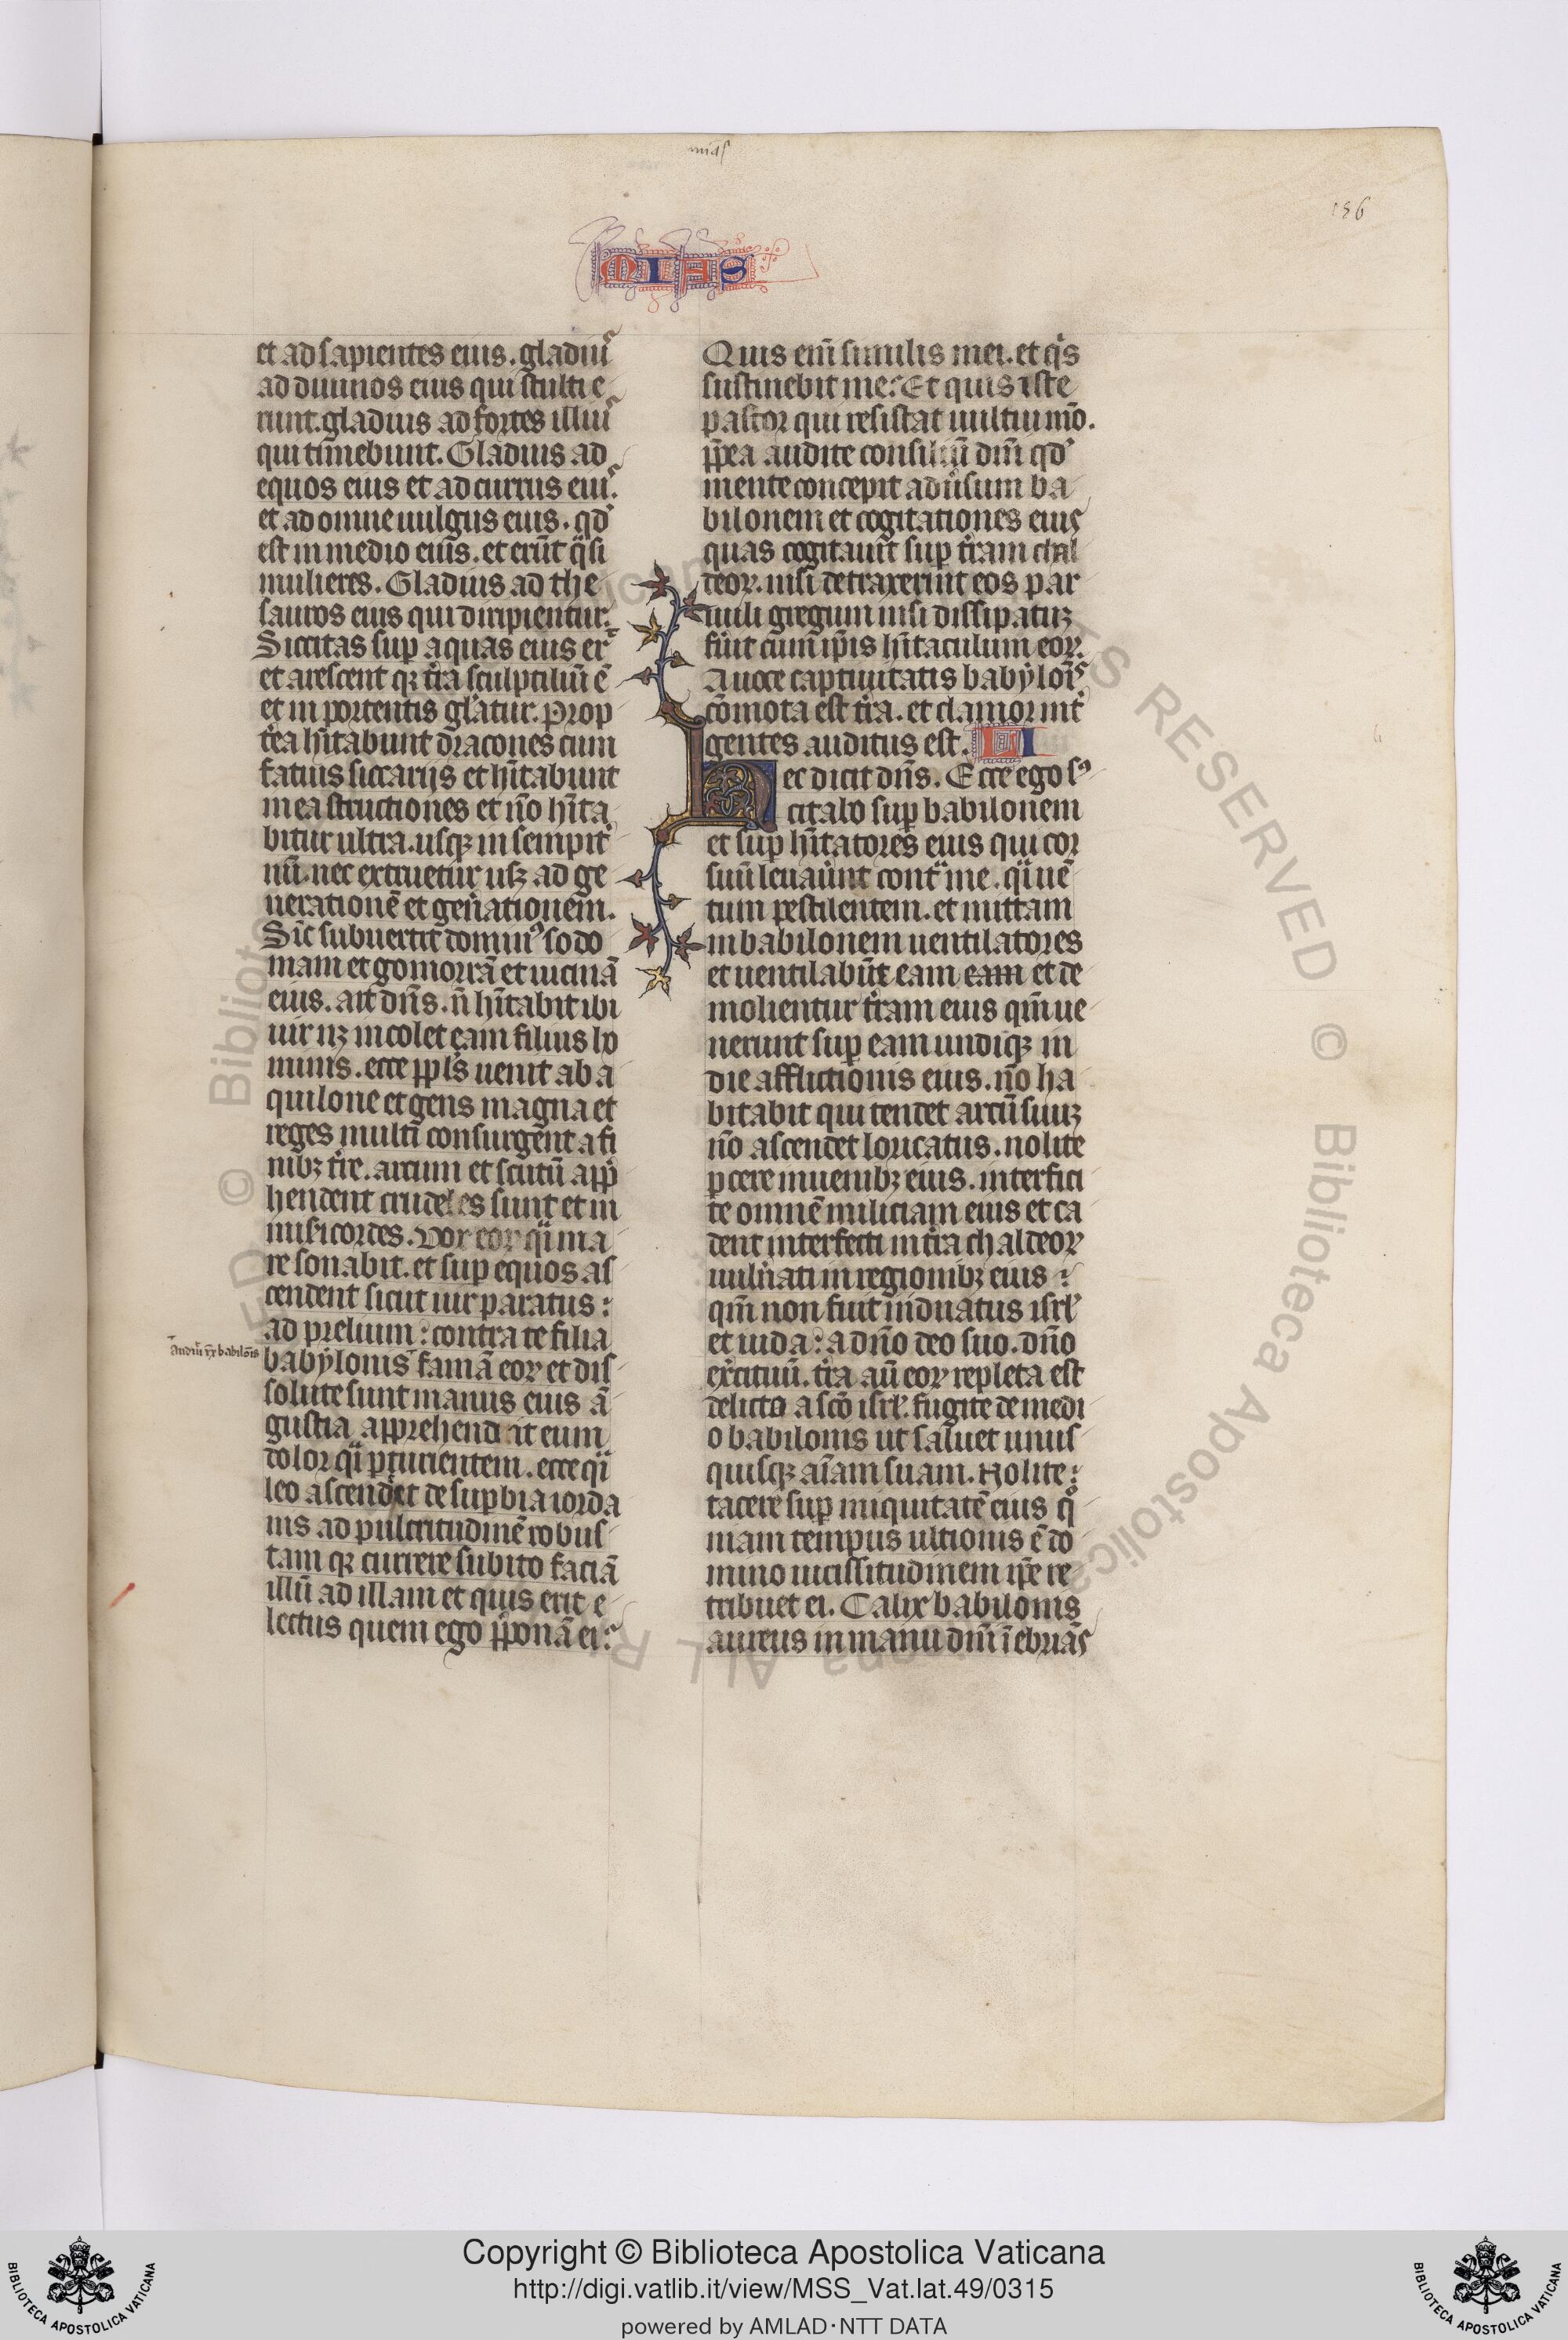 mias
186
MIAS
et ad sapientes eius. gladiu᷒
ad diuinos eius qui stulti e
runt. gladius ad fortes illiu᷒
qui timebunt. Gladius ad
equos eius et ad currus eiu᷒.
et ad omne uulgus eius. qd̕
est in medio eius. et erūt qͣsi
mulieres. Gladius ad the
sauros eius qui diripientur.
Siccitas sup̱ aquas eius er̄
et arescent qꝫ tr̄a sculptiliū ē
et in portentis gl̄atur. Prop
t̄ea hītabunt dracones cum
fatuis siccarijs et hītabunt
in ea structiones et nō hīta
bitur ultra. usqꝫ in sempit̕
nū. nec extruetur usqꝫ ad ge
nerationē et gen̄ationem.
Sic̄ subuertit dominꝰ sodo
mam et gomorrā et uicinā
eius. ait dn̄s. n̄ hītabit ibi
uir nꝫ incolet eam filius ho
minis. ecce pp̄ls uenit ab a
quilone et gens magna et
reges multi consurgent a fi
nibꝫ tr̄e. arcum et scutū app̄
hendent crudeles sunt et in
misicordes. Vox eoꝝ qͣi ma
re sonabit. et sup̱ equos as
cendent sicut uir paratus:
ad prelium: contra te filia
babylonis famā eoꝝ et dis
audiū rex babilōis
solute sunt manus eius ā
gustia apprehendit eum
dolor qͣi p̱turientem. ecce qͣi
leo ascendet de sup̱bia iorda
nis ad pulcritudinē robus
tam qꝫ currere subito faciā
illū ad illam et quis erit e
lectus quem ego p̄ponā ei?
Quis eni᷒ similis mei. et qͥs
sustinebit me? Et quis iste
pastor qui resistat uultui mō.
pp̄ea audite consilium dn̄i qd̕
mente concepit adūsum ba
bilonem et cogitationes eiꝰ
quas cogitauit sup̱ tr̄am chal
deoꝝ. nisi detraxerint eos par
uuli gregum nisi dissipatuꝫ
fūit cum ip̄is hītaculum eoꝝ.
A uoce captiuitatis babylōis
cōmota est tr̄a. et clamor int̕
gentes auditus est. LI
Hec dicit dn̄s. Ecce ego sꝰ
citabo sup̱ babilonem
et sup̱ hītatores eius qui cor
suū leuaūnt contͣ me. qͣi uē
tum pestilentem. et mittam
in babilonem uentilatores
et uentilabūt eam eam et de
molientur tr̄am eius qm̄ ue
nerunt sup̱ eam undiqꝫ in
die afflictionis eius. nō ha
bitabit qui tendet arcū suuꝫ
nō ascendet loricatus. nolite
p̱cere iuuenibꝫ eius. interfici
te omnē miliciam eius et ca
dent interfecti in tr̄a chaldeoꝝ
uuln̄ati in regionibꝫ eius:
qm̄ non fuit uiduatus isrl̕
et iuda: a dn̄o deo suo. dn̄o
exercituū. tr̄a aū eoꝝ repleta est
delicto a scō isrl̕. fugite de medi
o babilonis ut saluet unus
quisqꝫ aīam suam. Nolite:
tacere sup̱ iniquitatē eius qͦ
niam tempus ultionis ē do
mino uicissitudinem ip̄e re
tribuet ei. Calix babilonis
aureus in manu dn̄i īebriās
Copyright © Biblioteca Apostolica Vaticana
http://digi.vatlib.it/view/MSS_Vat.lat.49/0315
powered by AMLAD·NTT DATA
BIBLIOTECA APOSTOLICA VATICANA
BIBLIOTECA APOSTOLICA VATICANA